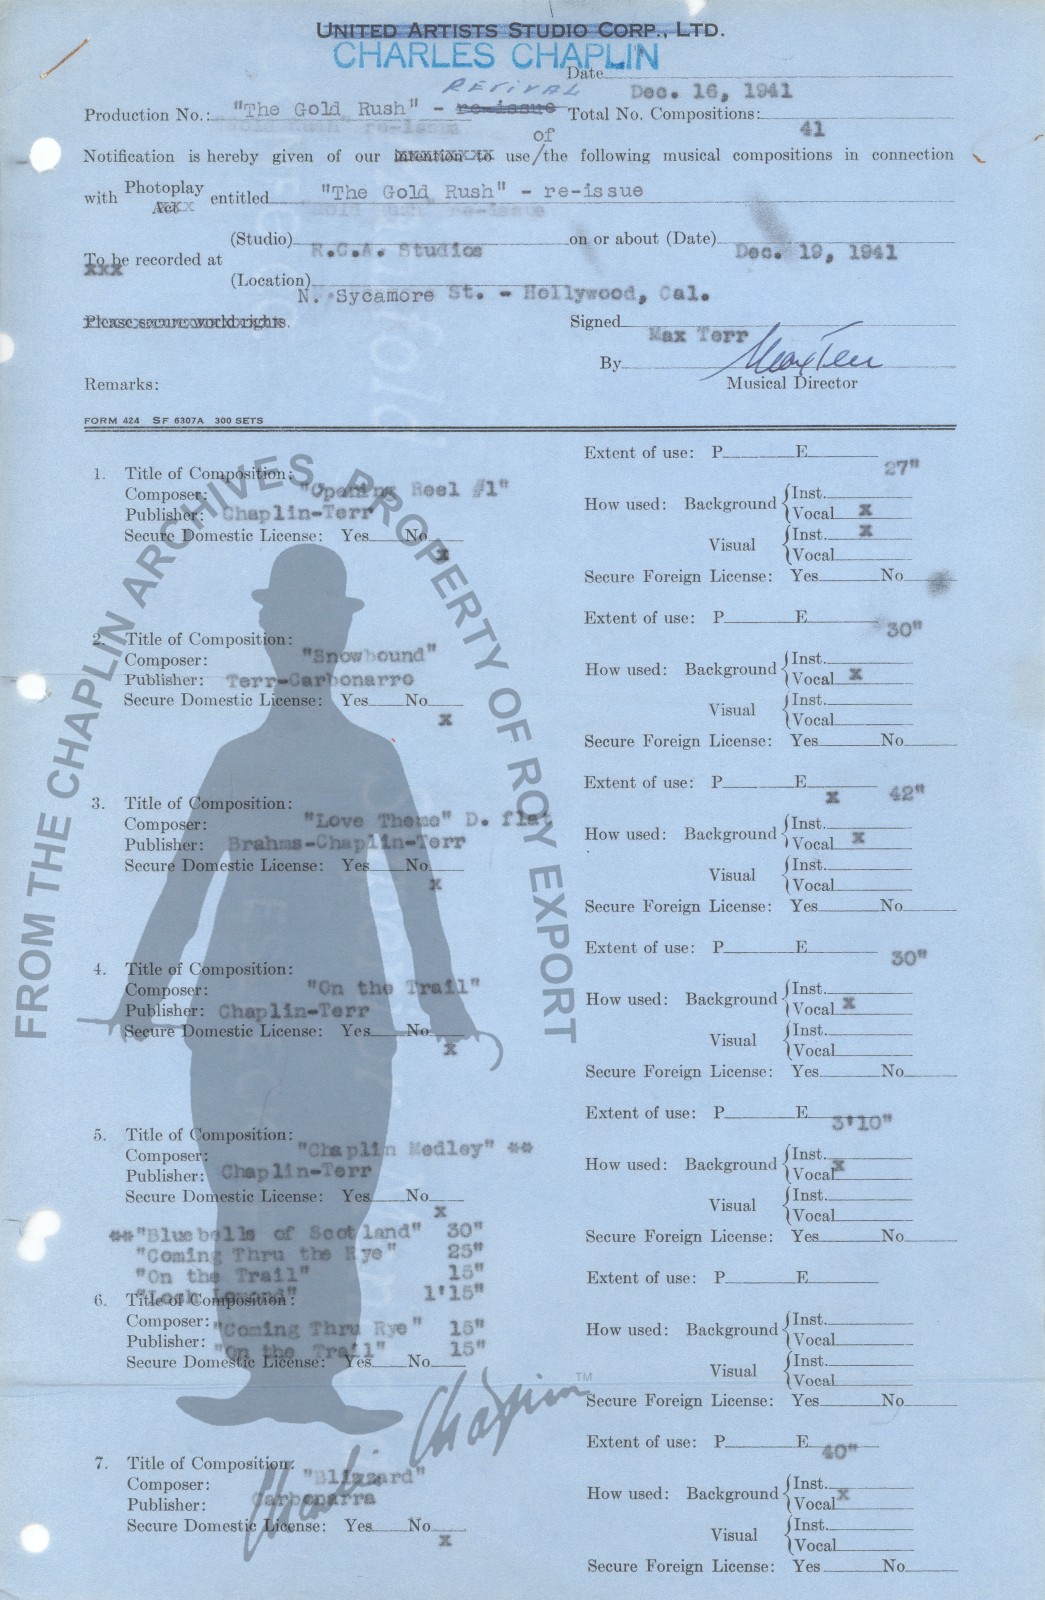 UNITED ARTISTS STUDIO CORP., LTD.
CHARLES CHAPLIN
Date
Dec. 16, 1941
REVIVAL
Production No.: "The Gold Rush" - re-issue Total No. Compositions:
41
of
Notification is hereby given of our intention to use/the following musical compositions in connection
with Photoplay entitled "The Gold Rush" - re-issue
Act
(Studio) R.C.A. Studios on or about (Date) Dec. 19, 1941
To be recorded at
xxx
(Location) N. Sycamore St. - Hollywood, Cal.
Please secure world rights. Signed Max Terr
By Max Terr
Remarks: Musical Director
FORM 424 SF 6307A 300 SETS
Extent of use: P. E. 27"
1. Title of Composition:
Composer: "Opening Reel #1"
Publisher: Chaplin-Terr
Secure Domestic License: Yes No x
How used: Background Inst.
Vocal x
Visual Inst. x
Vocal
Secure Foreign License: Yes No
Extent of use: P. E. 30"
2. Title of Composition:
Composer: "Snowbound"
Publisher: Terr-Carbonarro
Secure Domestic License: Yes No x
How used: Background Inst.
Vocal x
Visual Inst.
Vocal
Secure Foreign License: Yes No
Extent of use: P. E. x 42"
3. Title of Composition:
Composer: "Love Theme" D. flat
Publisher: Brahms-Chaplin-Terr
Secure Domestic License: Yes No x
How used: Background Inst.
Vocal x
Visual Inst.
Vocal
Secure Foreign License: Yes No
Extent of use: P. E. 30"
4. Title of Composition:
Composer: "On the Trail"
Publisher: Chaplin-Terr
Secure Domestic License: Yes No x
How used: Background Inst.
Vocal x
Visual Inst.
Vocal
Secure Foreign License: Yes No
Extent of use: P. E. 3'10"
5. Title of Composition:
Composer: "Chaplin Medley" **
Publisher: Chaplin-Terr
Secure Domestic License: Yes No x
How used: Background Inst.
Vocal x
Visual Inst.
Vocal
Secure Foreign License: Yes No
**"Bluebells of Scotland" 30"
"Coming Thru the Rye" 25"
"On the Trail" 15"
"Loch Lomond" 1'15"
Extent of use: P. E.
6. Title of Composition:
Composer: "Coming Thru Rye" 15"
Publisher: "On the Trail" 15"
Secure Domestic License: Yes No
How used: Background Inst.
Vocal
Visual Inst.
Vocal
Secure Foreign License: Yes No
Extent of use: P. E. 40"
7. Title of Composition:
Composer: "Blizzard"
Publisher: Carbonarra
Secure Domestic License: Yes No x
How used: Background Inst.
Vocal x
Visual Inst.
Vocal
Secure Foreign License: Yes No
FROM THE CHAPLIN ARCHIVES, PROPERTY OF ROY EXPORT
Charlie Chaplin TM